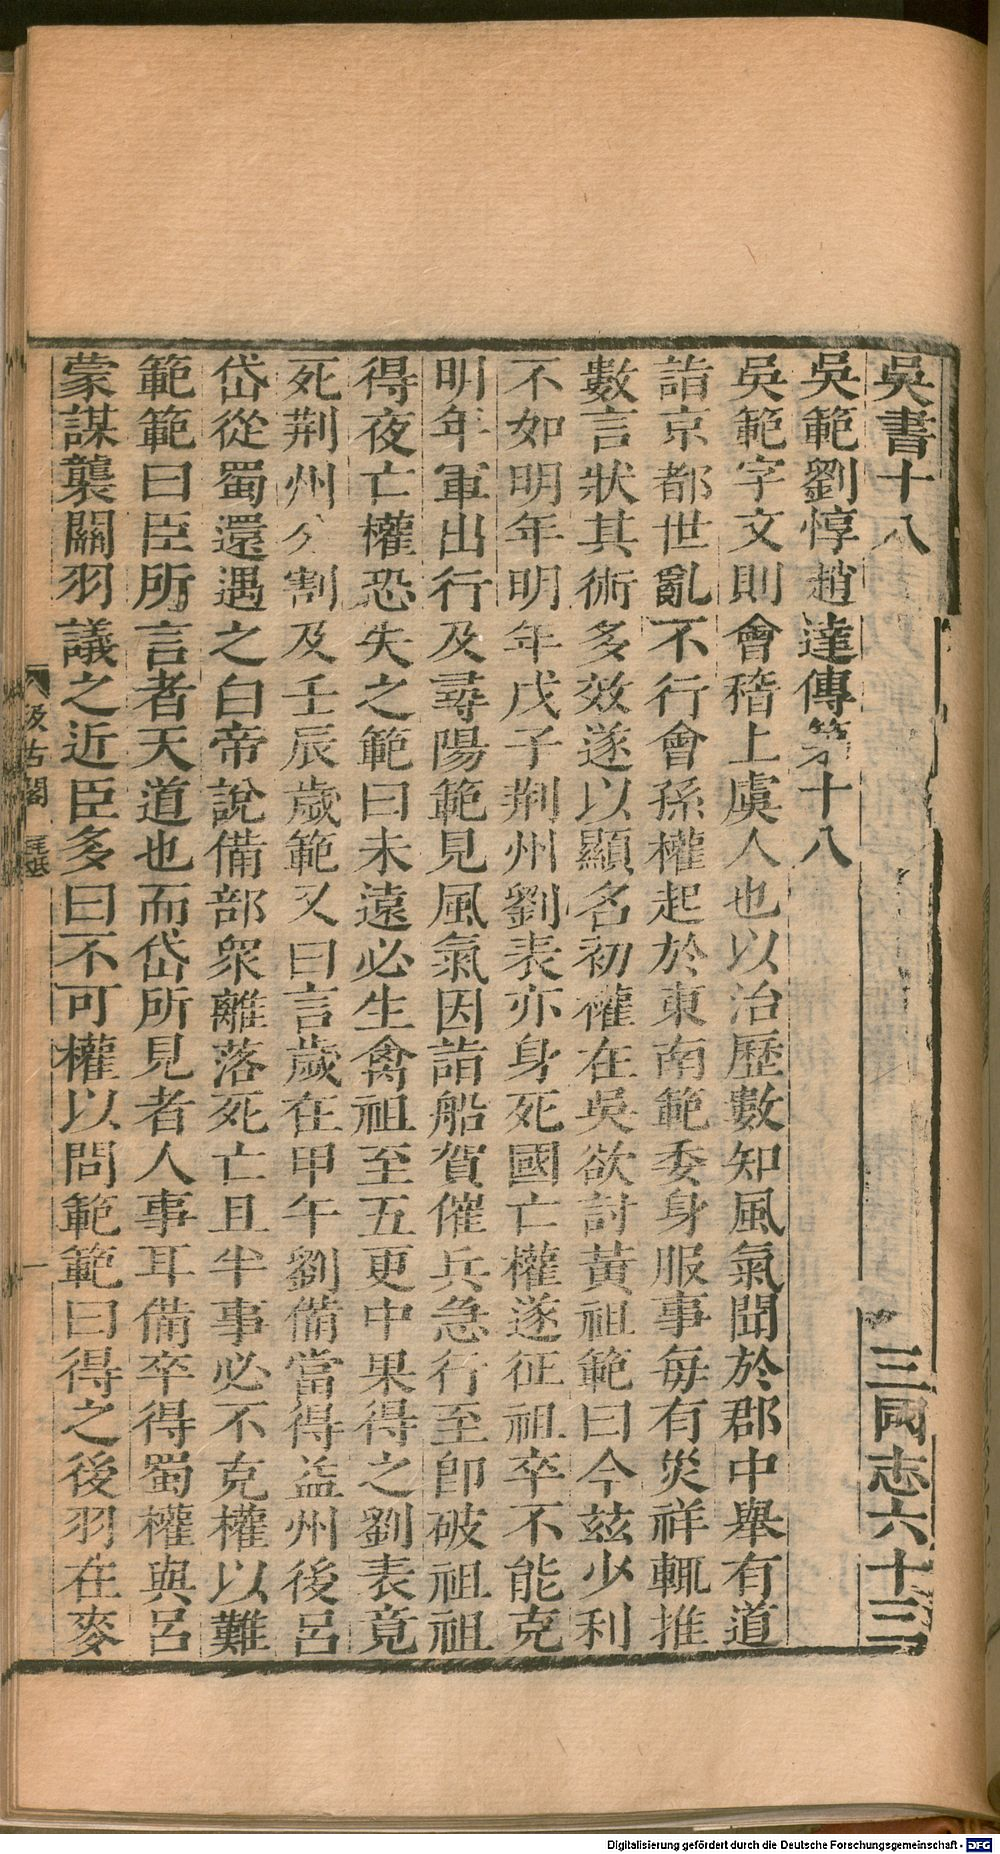 吳書十八 三國志六十三
吳範劉惇趙達傳第十八
吳範字文則會稽上虞人也以治歷數知風氣聞於郡中舉有道
詣京都世亂不行會孫權起於東南範委身服事每有災祥輒推
數言狀其術多效遂以顯名初權在吳欲討黃祖範曰今茲少利
不如明年明年戊子荆州劉表亦身死國亡權遂征祖卒不能克
明年軍出行及尋陽範見風氣因詣船賀催兵急行至卽破祖祖
得夜亡權恐失之範曰未遠必生禽祖至五更中果得之劉表竟
死荆州分割及壬辰歲範又曰言歲在甲午劉備當得益州後呂
岱從蜀還遇之白帝說備部衆離落死亡且半事必不克權以難
範範曰臣所言者天道也而岱所見者人事耳備卒得蜀權與呂
蒙謀襲關羽議之近臣多曰不可權以問範範曰得之後羽在麥
汲古閣
一
Digitalisierung gefördert durch die Deutsche Forschungsgemeinschaft - DFG